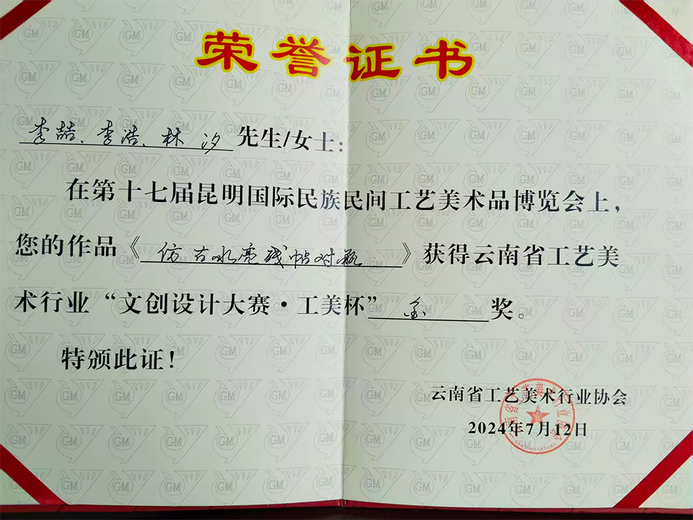 荣誉证书
李喆、李浩、林汐 先生/女士:
在第十七届昆明国际民族民间工艺美术品博览会上,
您的作品《仿古水亮残帖对瓶》获得云南省工艺美
术行业“文创设计大赛·工美杯” 金 奖。
特颁此证!
云南省工艺美术行业协会
2024年7月12日
GM